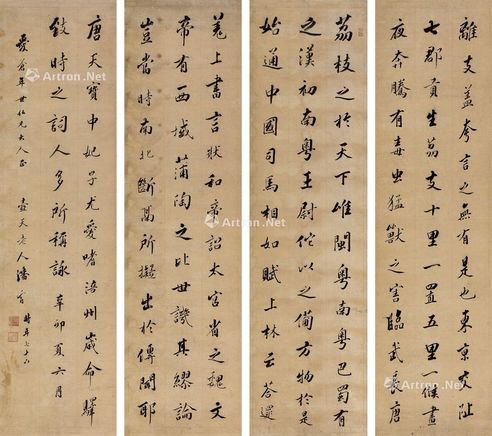 荔枝之於天下唯閩粵南粵巴蜀有
之漢初南粵王尉佗以之備方物於是
始通中國司馬相如賦上林云荅遝
離支蓋夸言之無有是也東京交阯
七郡貢生荔支十里一置五里一堠晝
夜奔騰有毒虫猛獸之害臨武長唐
羌上書言狀和帝詔太官省之魏文
帝有西域蒲陶之比世譏其繆論
豈當時南北斷隔所擬出於傳聞耶
唐天寶中妃子尤愛嗜涪州歲命驛
致時之詞人多所稱詠 辛卯夏六月
愛蒼年世仁兄大人正 壺天老人潘 時年七十
Artron.Net
Artron.Net
Artron.Net
Artron.Net